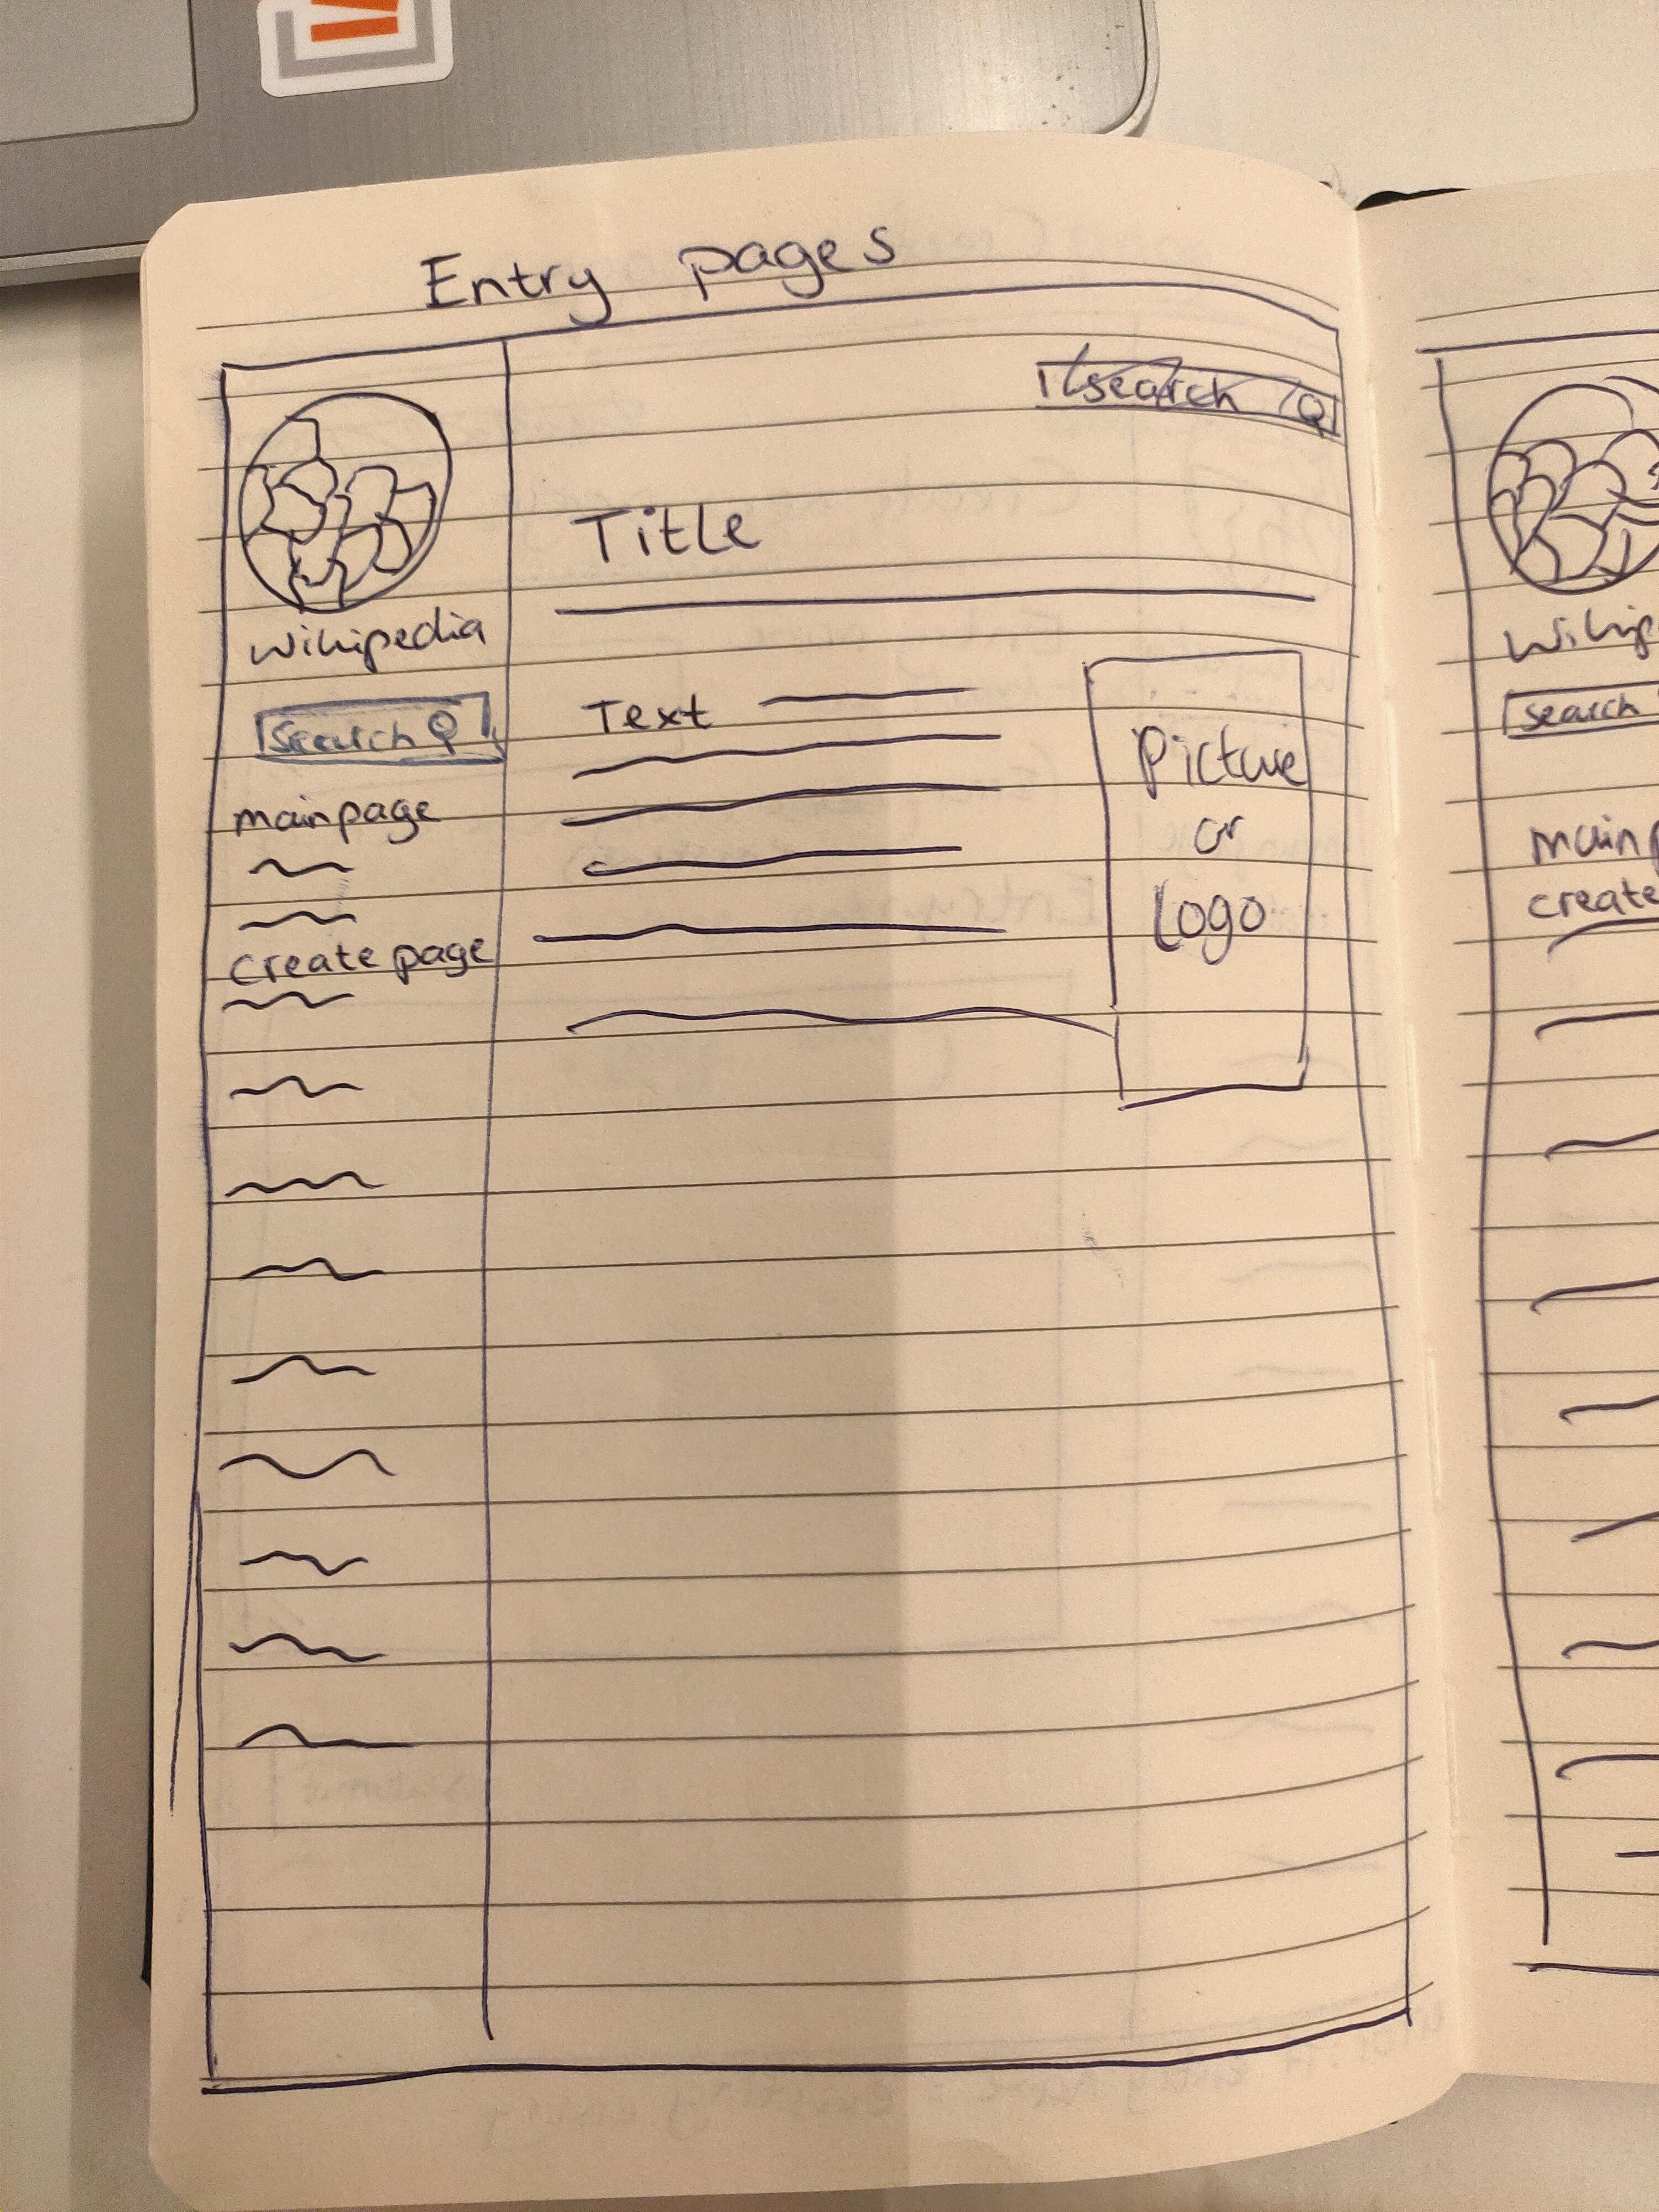 Entry pages
search
Title
Wikipedia
Search
mainpage
create page
Text
Picture
or
Logo
Wikip
search
mainp
create